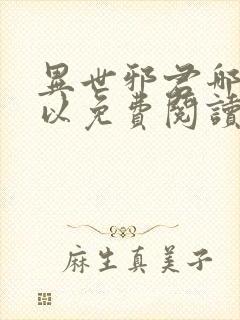 異世邪君哪
以免費閱讀
麻生真美子